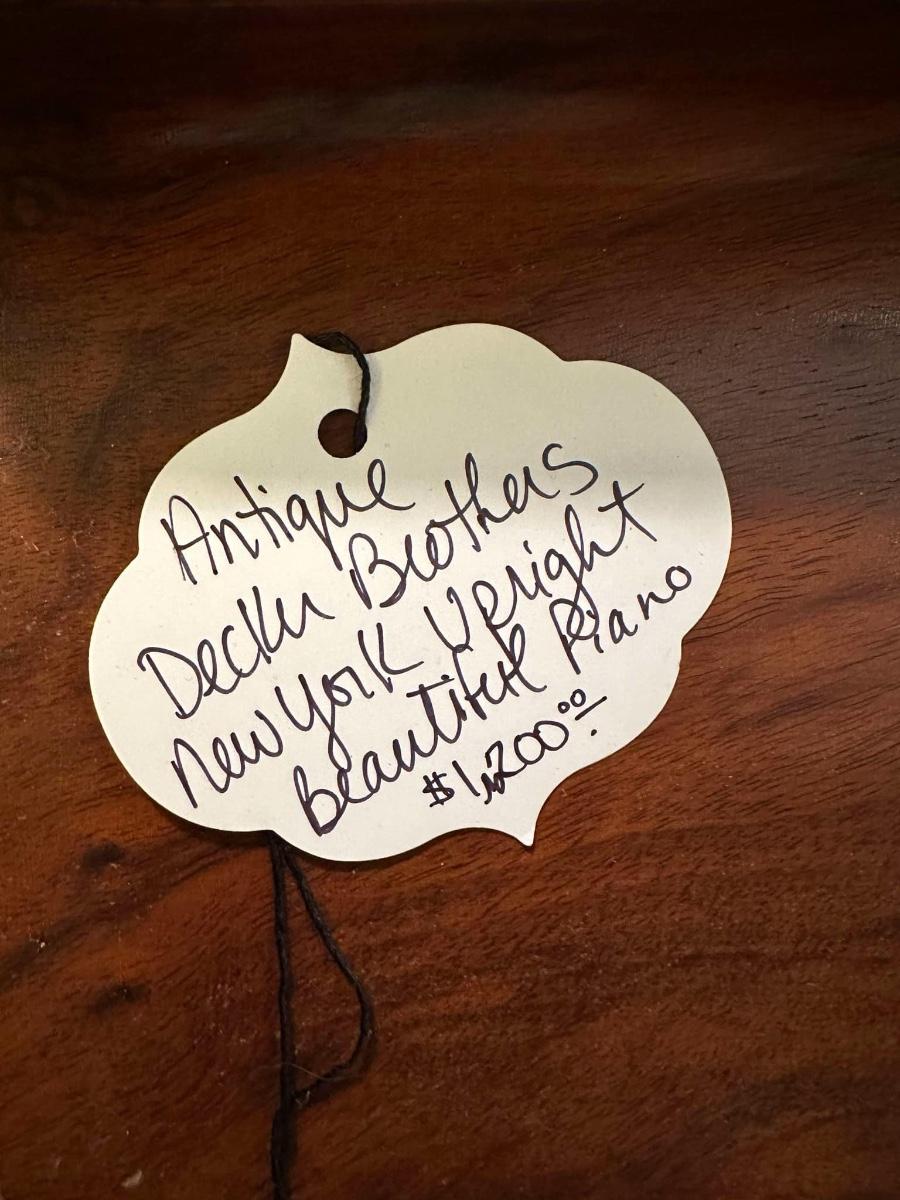 Antique
Decker Brothers
New York Upright
Beautiful Piano
$1,200.00